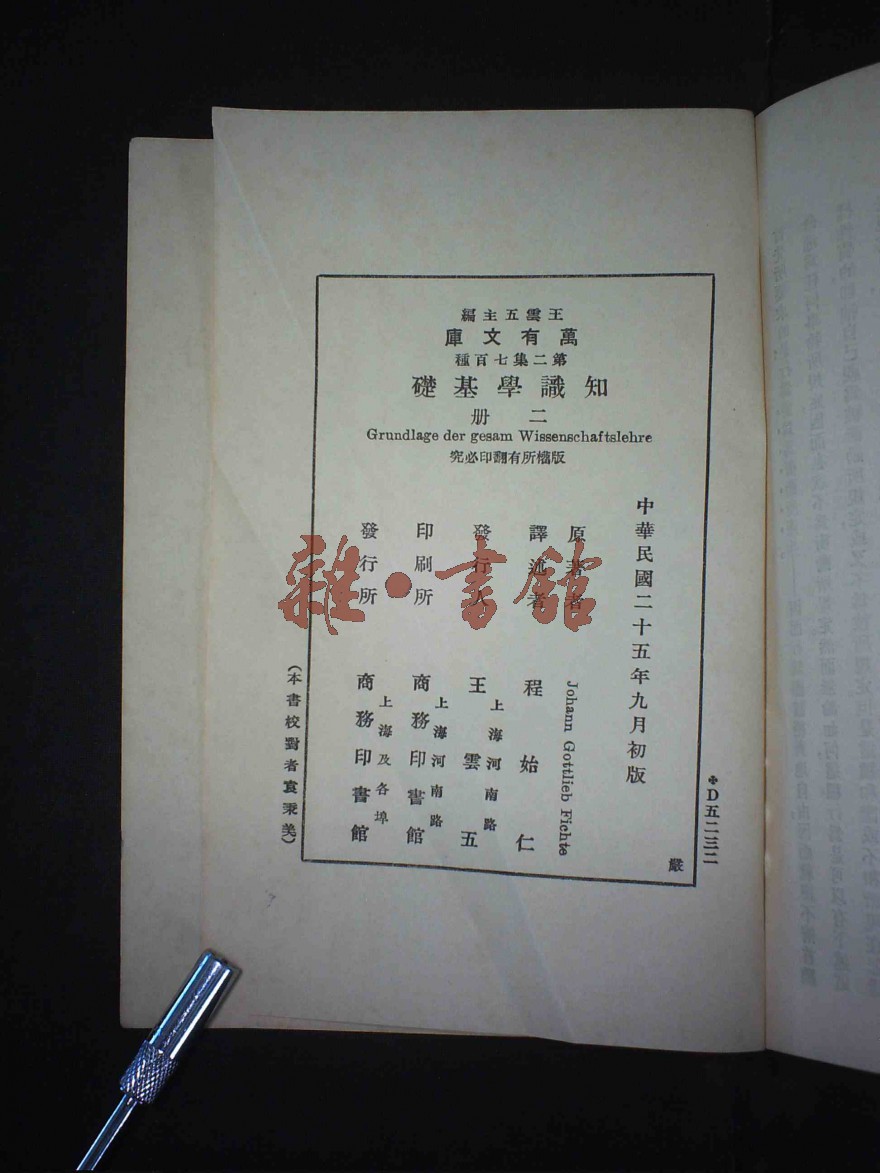 王雲五主編
萬有文庫
第二集七百種
知識學基礎
二册
Grundlage der gesam Wissenschaftslehre
版權所有翻印必究
中華民國二十五年九月初版
原著者 Johann Gottlieb Fichte
譯述者 程始仁
發行人 王雲五
上海河南路
印刷所 商務印書館
上海河南路
發行所 商務印書館
上海及各埠
(本書校對者袁秉美)
D五二三二
嚴
雜·書館